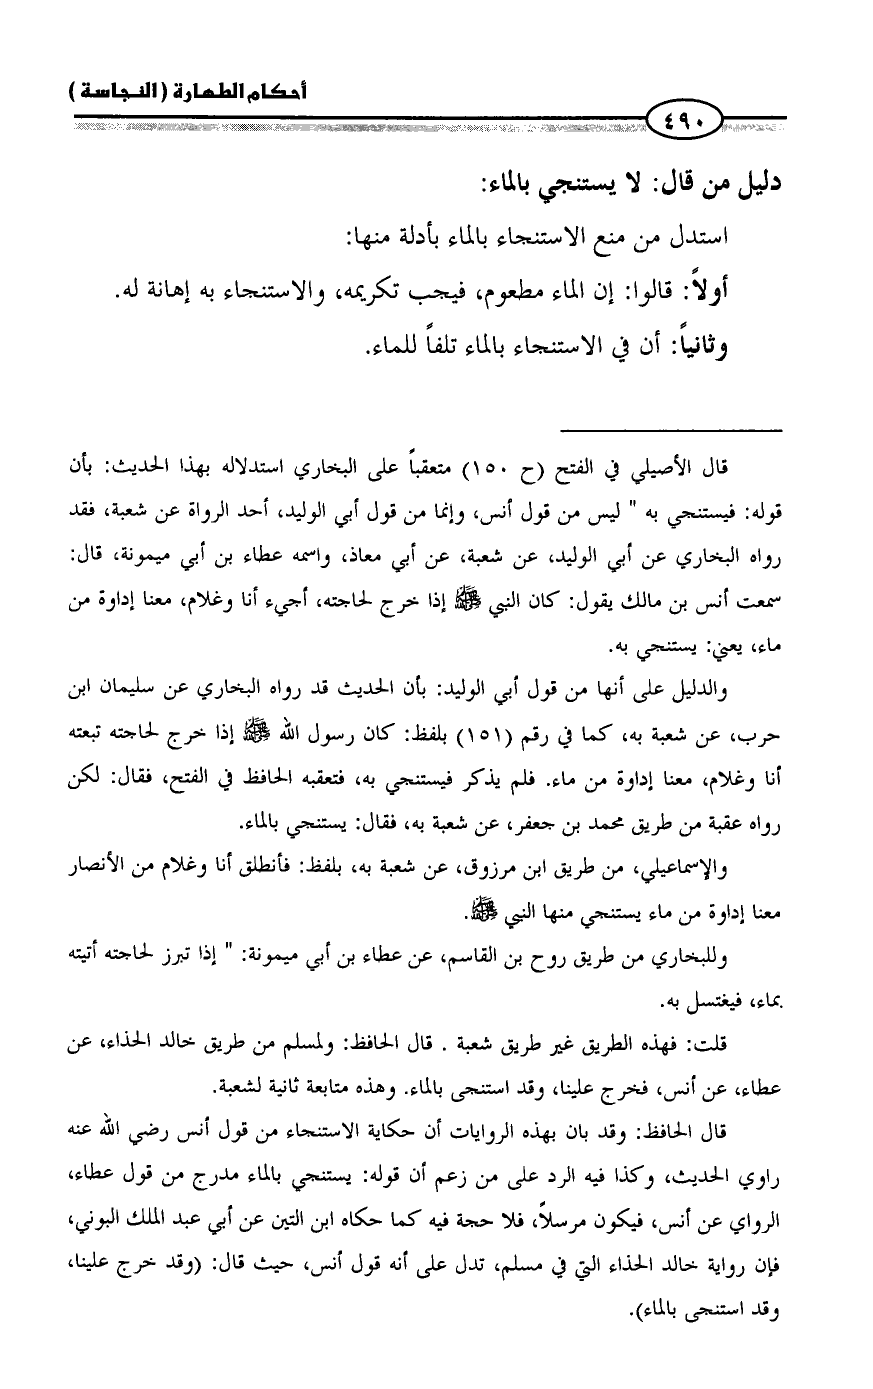 أحكام الطهارة (النجاسة)
٤٩٠
دليل من قال: لا يستنجي بالماء:
استدل من منع الاستنجاء بالماء بأدلة منها:
أولاً: قالوا: إن الماء مطعوم، فيجب تكريمه، والاستنجاء به إهانة له.
وثانياً: أن في الاستنجاء بالماء تلفاً للماء.
قال الأصيلي في الفتح (ح ١٥٠) متعقباً على البخاري استدلاله بهذا الحديث: بأن
قوله: فيستنجي به " ليس من قول أنس، وإنما من قول أبي الوليد، أحد الرواة عن شعبة، فقد
رواه البخاري عن أبي الوليد، عن شعبة، عن أبي معاذ، واسمه عطاء بن أبي ميمونة، قال:
سمعت أنس بن مالك يقول: كان النبي ﷺ إذا خرج لحاجته، أجيء أنا وغلام، معنا إداوة من
ماء، يعني: يستنجي به.
والدليل على أنها من قول أبي الوليد: بأن الحديث قد رواه البخاري عن سليمان ابن
حرب، عن شعبة به، كما في رقم (١٥١) بلفظ: كان رسول الله ﷺ إذا خرج لحاجته تبعته
أنا وغلام، معنا إداوة من ماء. فلم يذكر فيستنجي به، فتعقبه الحافظ في الفتح، فقال: لكن
رواه عقبة من طريق محمد بن جعفر، عن شعبة به، فقال: يستنجي بالماء.
والإسماعيلي، من طريق ابن مرزوق، عن شعبة به، بلفظ: فأنطلق أنا وغلام من الأنصار
معنا إداوة من ماء يستنجي منها النبي ﷺ.
وللبخاري من طريق روح بن القاسم، عن عطاء بن أبي ميمونة: " إذا تبرز لحاجته أتيته
بماء، فيغتسل به.
قلت: فهذه الطريق غير طريق شعبة . قال الحافظ: ولمسلم من طريق خالد الحذاء، عن
عطاء، عن أنس، فخرج علينا، وقد استنجى بالماء. وهذه متابعة ثانية لشعبة.
قال الحافظ: وقد بان بهذه الروايات أن حكاية الاستنجاء من قول أنس رضي الله عنه
راوي الحديث، وكذا فيه الرد على من زعم أن قوله: يستنجي بالماء مدرج من قول عطاء،
الرواي عن أنس، فيكون مرسلاً، فلا حجة فيه كما حكاه ابن التين عن أبي عبد الملك البوني،
فإن رواية خالد الحذاء التي في مسلم، تدل على أنه قول أنس، حيث قال: (وقد خرج علينا،
وقد استنجى بالماء).